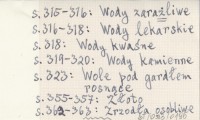 s. 315-316: Wody zaraźliwe
s. 316-318: Wody lekarskie
s. 318: Wody kwaśne
s. 319-320: Wody kamienne
s. 323: Wole pod gardłem
rosnące
s. 355-357: Złoto
s. 362-363: Zrzodła osobliwe